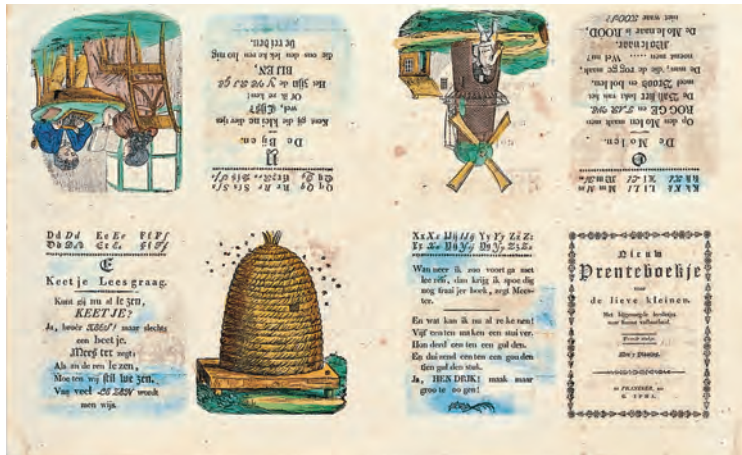 De Bij en.
Kent gij die klei ne dier tjes
wel, Gijs?
Of ik ze ken!
Het zijn de
BIJEN,
die ons den lek ke ren ho nig
be rei den.
De Mo len.
Op den Mo len maalt men
ROG GE en TAR WE.
De Bak ker bakt van het
meel Brood en bol len.
De man, die de rog ge maalt,
noemt men ..... Wel nu?
Mo le naar.
De Mo le naar is ROOD,
niet waar
Dd Dd Ee Ee Ff Ff
E
Keet je Lees graag.
Kunt gij nu al le zen,
KEETJE?
Ja, broêr KEES! maar slechts
een beet je.
Mees ter zegt:
Als an de ren le zen,
Moe ten wij stil we zen.
Van veel LE ZEN wordt
men wijs.
Xx Xx IJij IJij Yy Yy Zz Zz
Wan neer ik zoo voort ga met
lee ren, dan krijg ik spoe dig
nog fraai jer boek, zegt Mees-
ter.
En wat kan ik nu al re ke nen!
Vijf cen ten ma ken een stui ver.
Hon derd cen ten een gul den.
En dui zend cen ten een gou den
tien gul den stuk.
Ja, HENDRIK! maak maar
groo te oo gen!
Nieuw
Prenteboekje
voor
de lieve kleinen.
Met bijgevoegde leesletjes
Eerste stukje.
te FRANEKER, bij
G. YPMA.